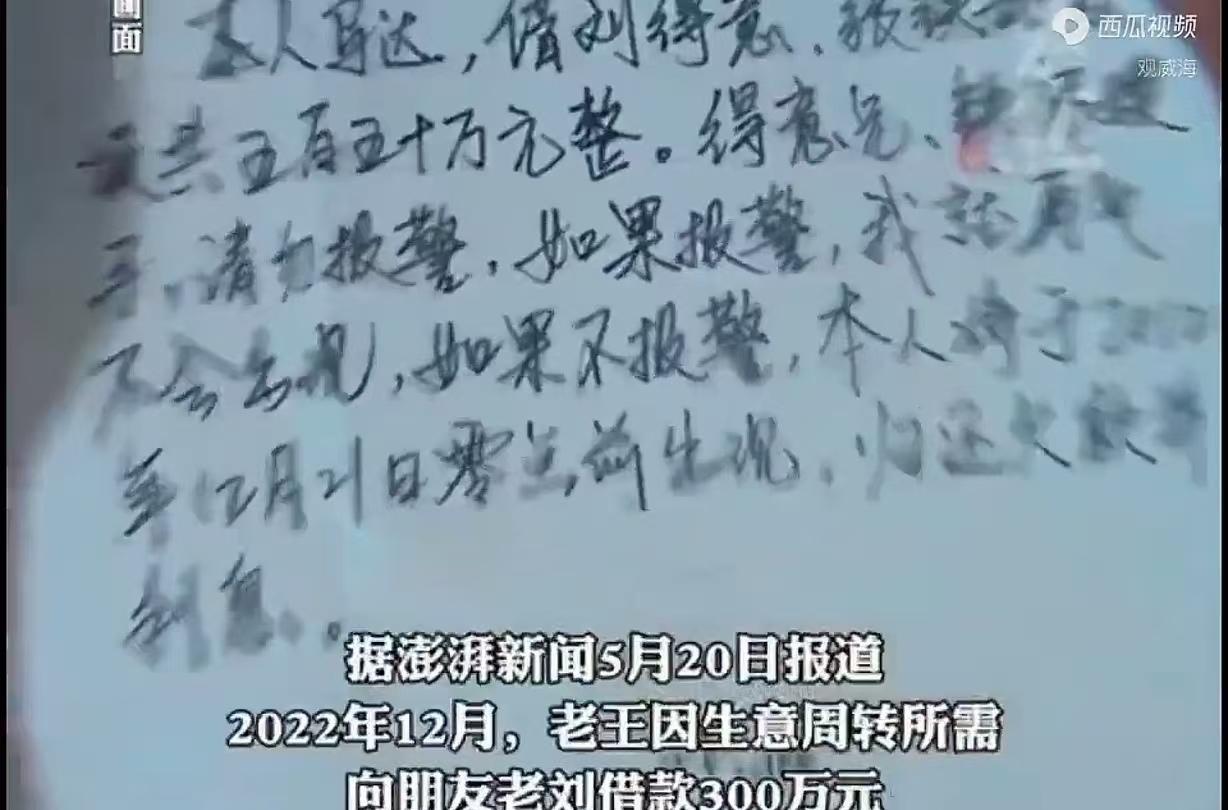 画面
西瓜视频
观威海
本人 借刘得意
共五百五十万元整。得意兄、
请勿报警,如果报警,我
不会出现,如果不报警,本人将于
年12月21日零点前出现,归还欠款
利息。
据澎湃新闻5月20日报道
2022年12月,老王因生意周转所需
向朋友老刘借款300万元